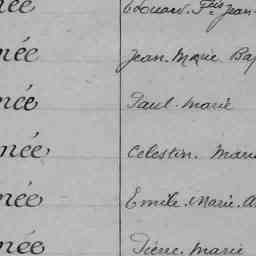 née Edouard. Fois Jean
née Jean. Marie Bap
née Paul. Marie
née, Celestin. Marie
née Emile. Marie. A
née Pierre. Marie